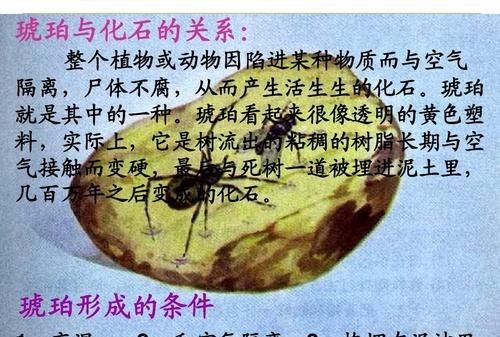 琥珀与化石的关系：
整个植物或动物因陷进某种物质而与空气
隔离，尸体不腐，从而产生活生生的化石。琥珀
就是其中的一种。琥珀看起来很像透明的黄色塑
料，实际上，它是树流出的粘稠的树脂长期与空
气接触而变硬，最后与死树一道被埋进泥土里，
几百万年之后变成的化石。
琥珀形成的条件